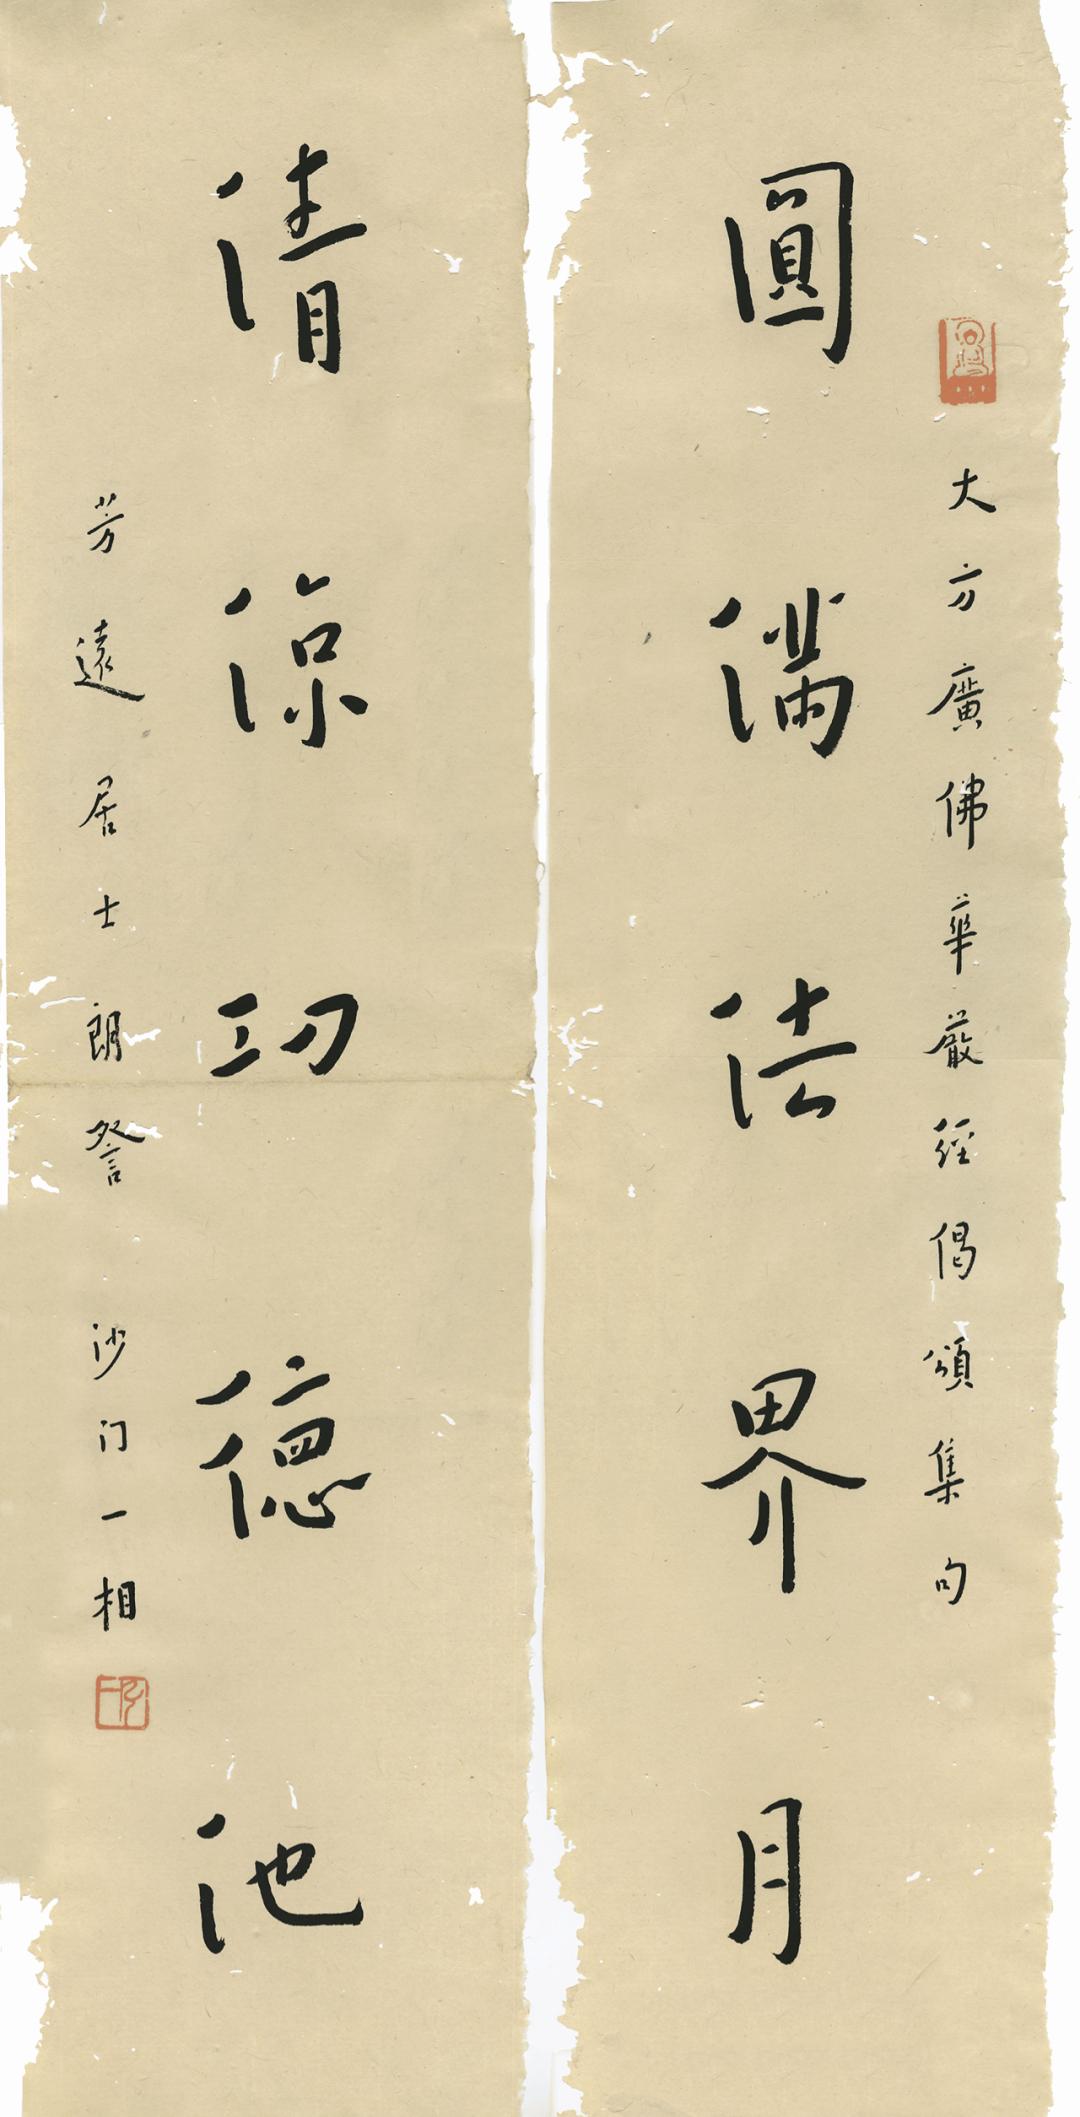 大方廣佛華嚴經偈頌集句
圓滿法界月
清涼功德池
芳遠居士朗詧 沙门一相